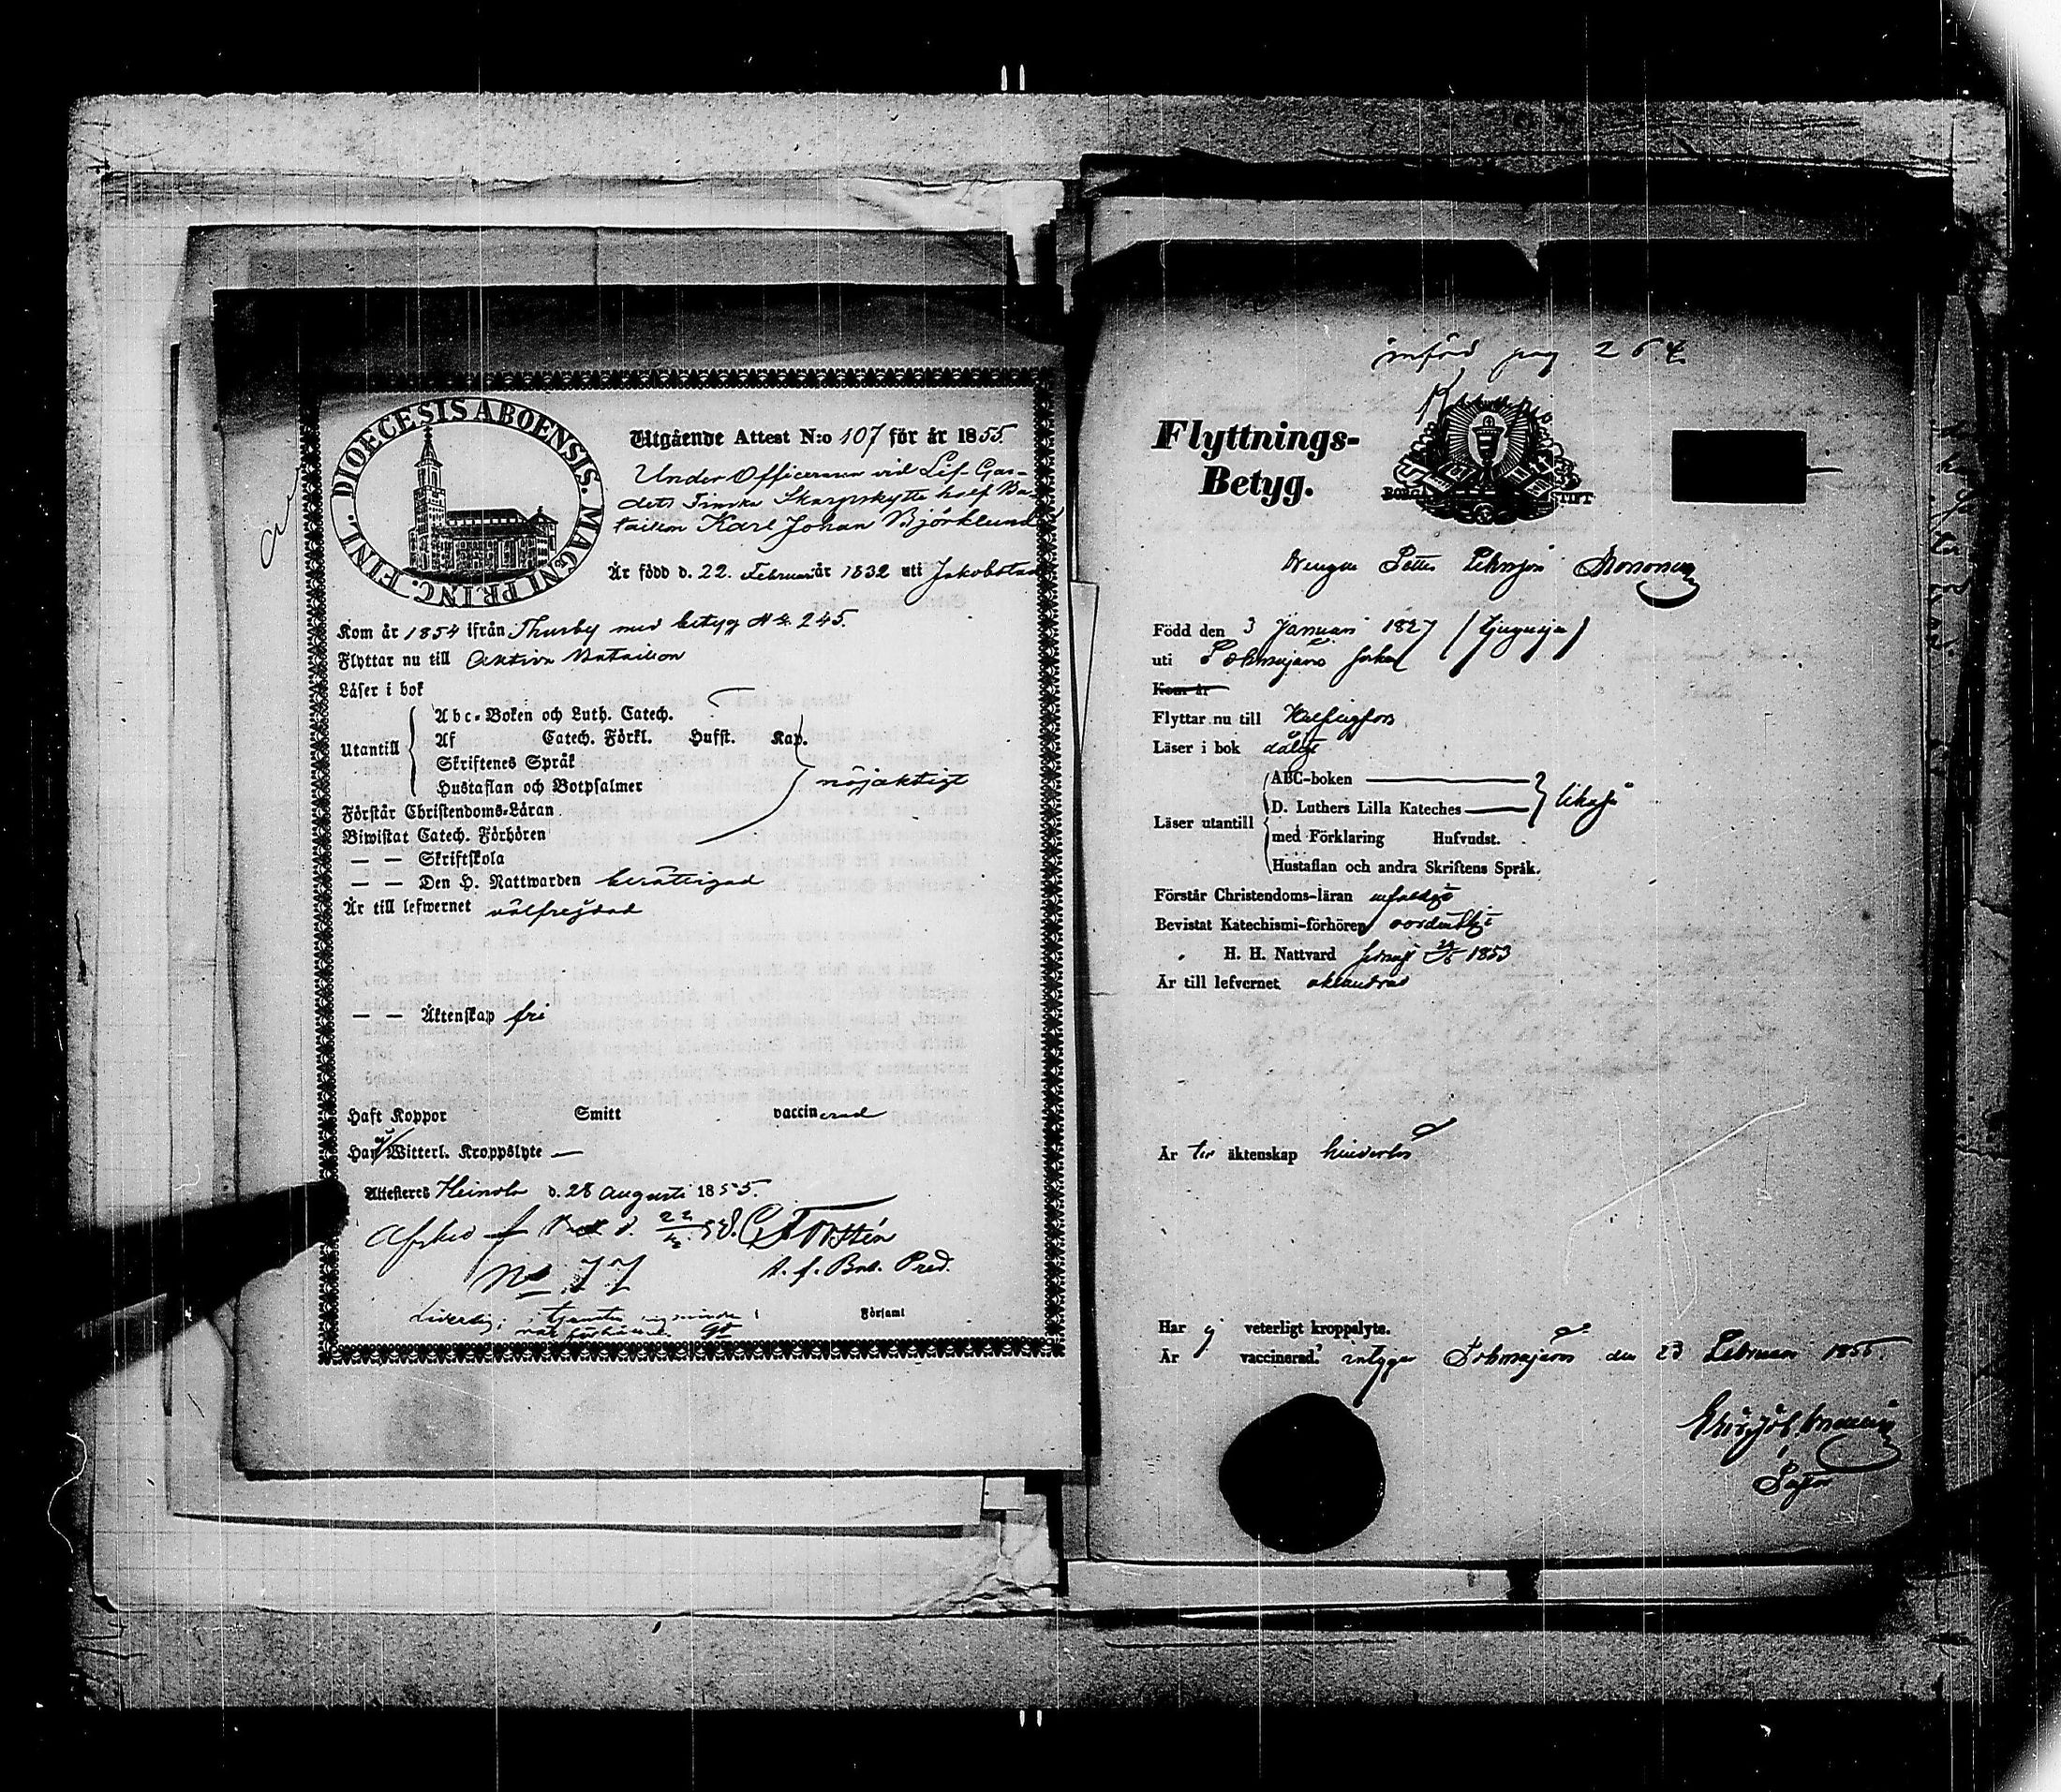 DIOECESIS ABOENSIS. MAGNI PRINC. FINL.
Utgående Attest N:o 107 för år 1855.
Under Officeraren vid Lif-Gar-
dets Finska Skarpskytte half Ba-
taillon Karl Johan Björklund
Är född d. 22. Februari år 1832 uti Jakobstad
Kom år 1854 ifrån Thusby med betyg N:o 245.
Flyttar nu till Aktiva Batailon
Läser i bok
Utantill
Abc-Boken och Luth. Catech.
Af Catech. Förkl. Hufst. Kap.
Skriftenes Språk
Hustaflan och Botpsalmer
nöjaktigt
Förstår Christendoms-Läran
Biwistat Catech. Förhören
— — Skriftskola
— — Den H. Nattwarden berättigad
Är till lefwernet välfrejdad
— — Äktenskap fri
Haft Koppor Smitt vaccinerad
Har ej Witterl. Kroppslyte —
Attesteres Heinola d. 28 Augusti 1855.
Afsked
No 77
Pred.
Församl
införd pag 264
Flyttnings-
Betyg.
BORGÅ STIFT
Drengen Petter Mononen
Född den 3 Januari 1827 (tjugusju)
uti Tohmajärvi
Kom år
Flyttar nu till Helsingfors
Läser i bok dåligt
Läser utantill
ABC-boken
D. Luthers Lilla Kateches
likaså
med Förklaring Hufvudst.
Hustaflan och andra Skriftens Språk.
Förstår Christendoms-läran enfaldigt
Bevistat Katechismi-förhören oordentligt
H. H. Nattvard senast 1853
Är till lefvernet oklandrad
Är till äktenskap hinderlös
Har ej veterligt kroppslyte.
Är vaccinerad. intygar Tohmajärvi den 23 Februari 1855.
Pastor